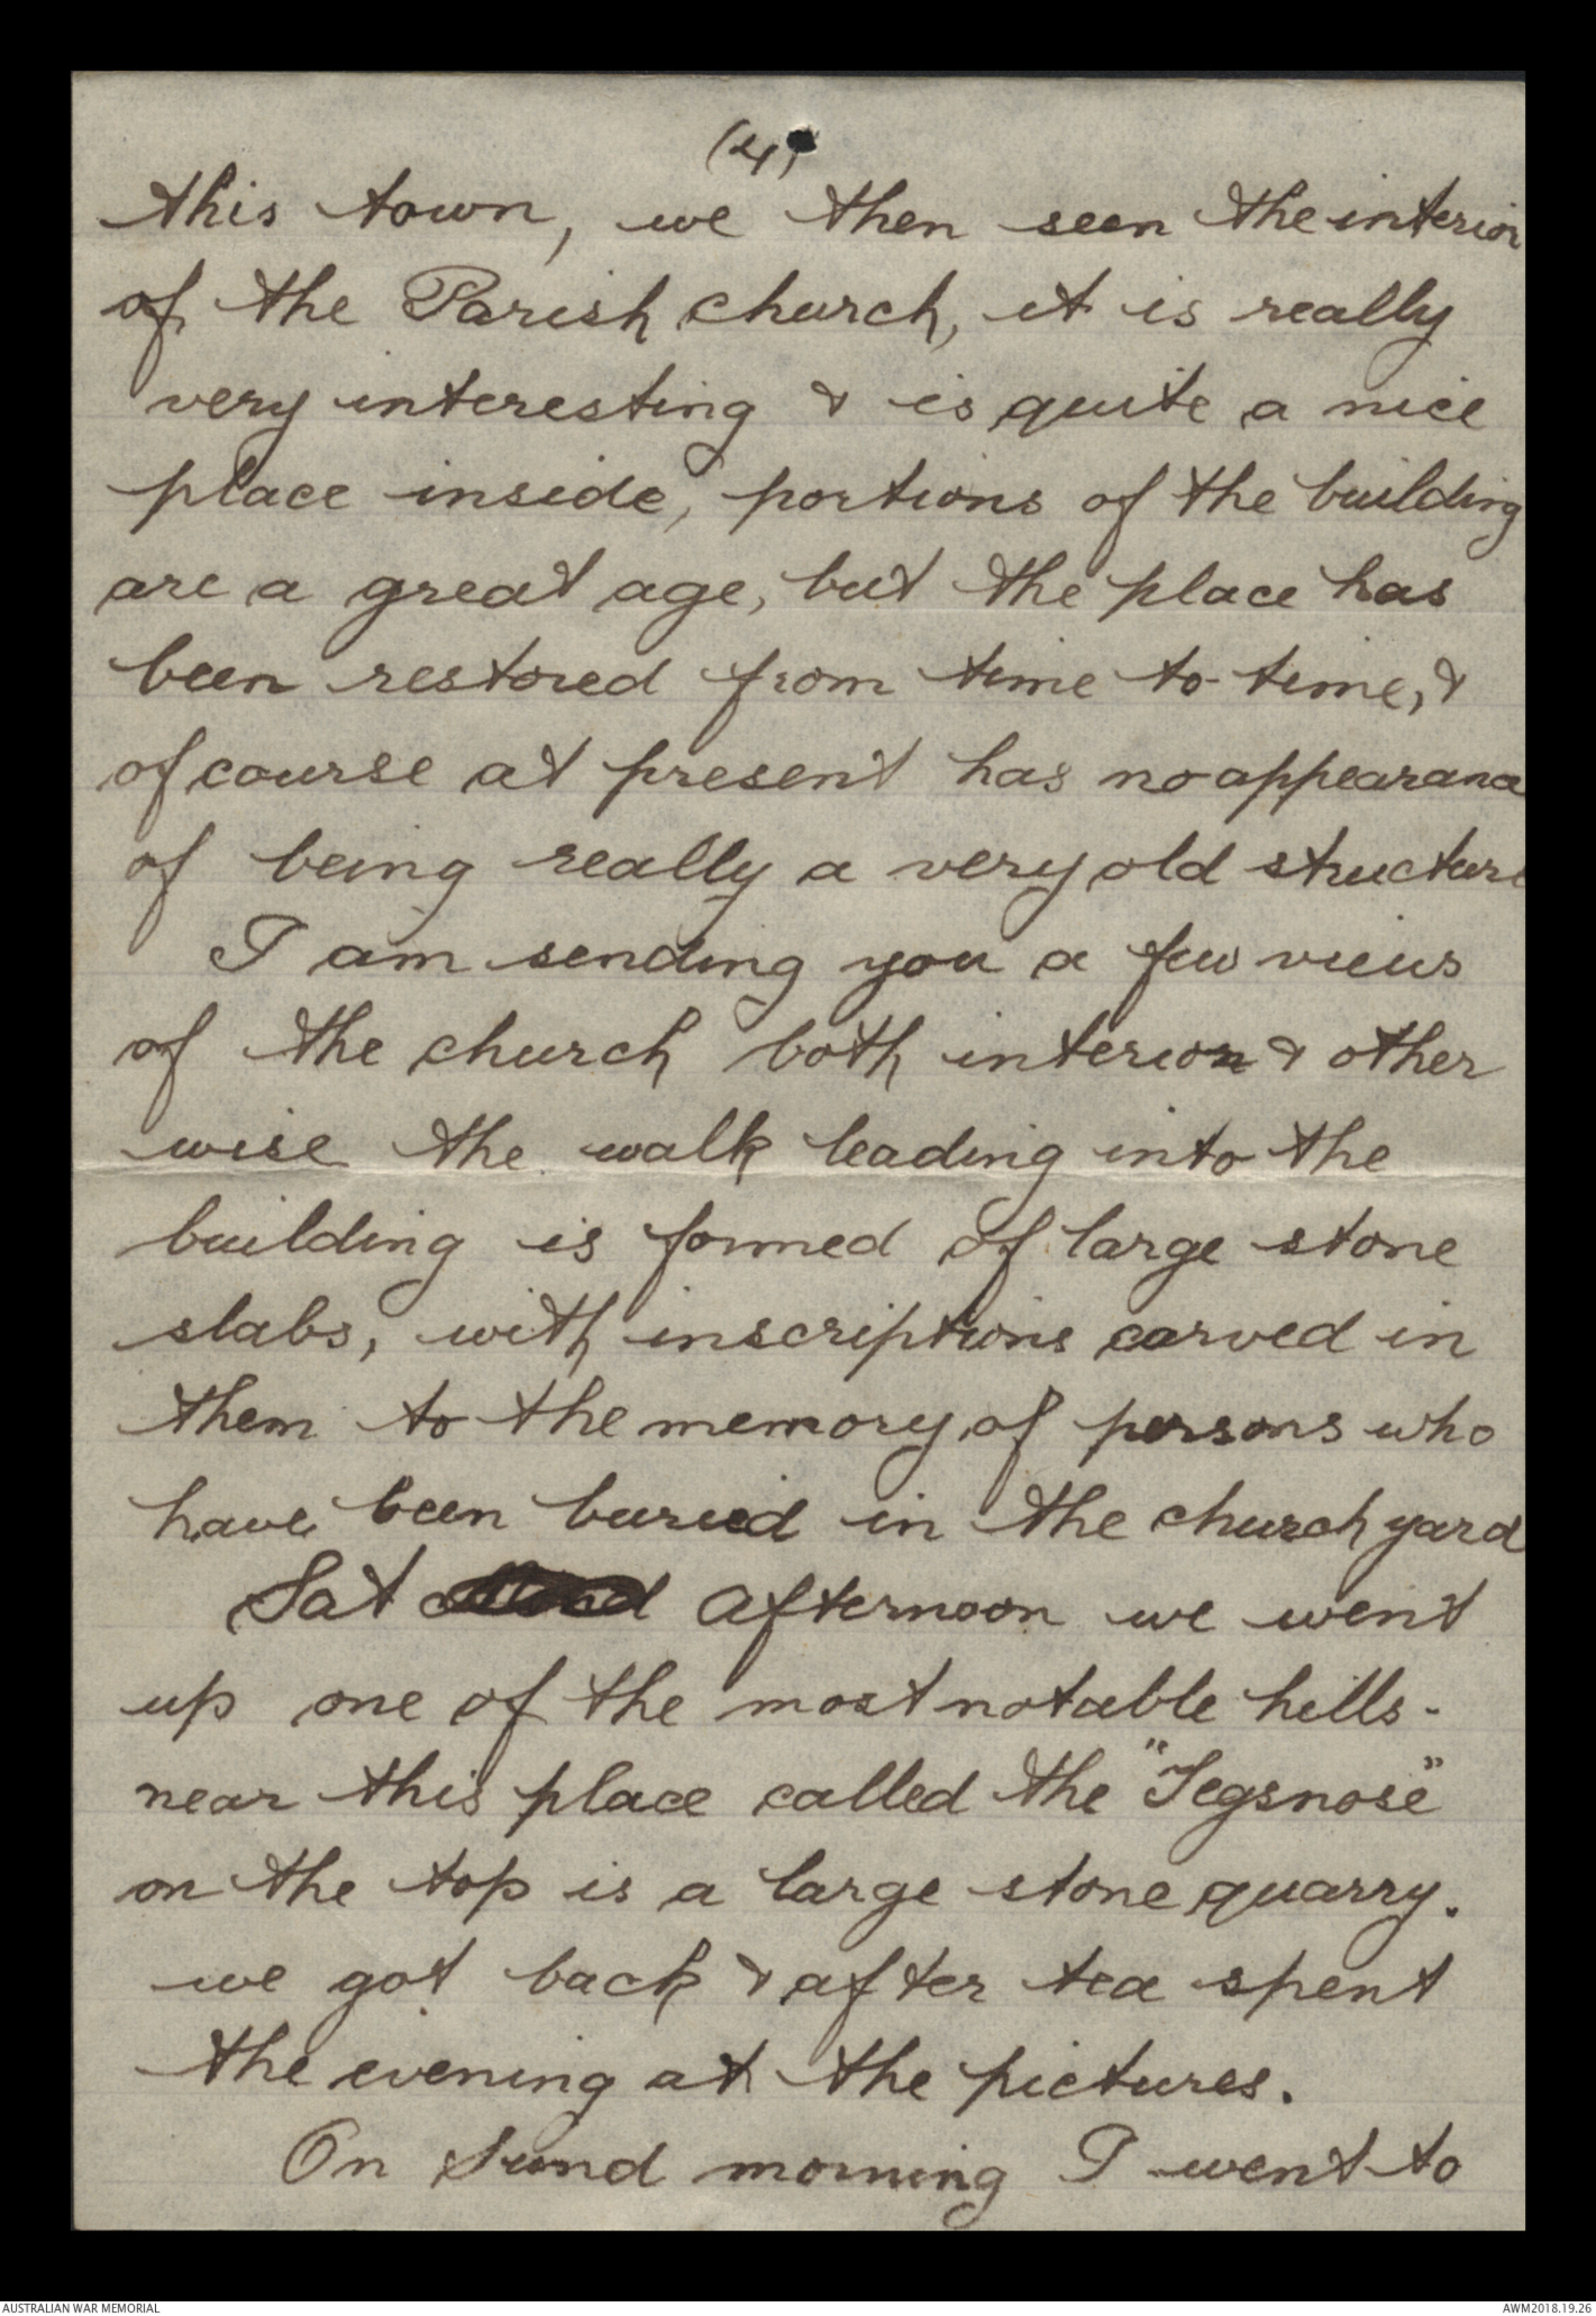 (4)
this town, we then seen the interior
of the Parish church, it is really
very interesting & is quite a nice
place inside, portions of the building
are a great age, but the place has
been restored from time to time, &
of course at present has no appearance
of being really a very old structure
I am sending you a few views
of the church both interior & other
wise the walk leading into the
building is formed of large stone
slabs, with inscriptions carved in
them to the memory of persons who
have been buried in the church yard
Sat afternoon we went
up one of the most notable hills -
near this place called the "Tegsnose"
on the top is a large stone quarry.
we got back & after tea spent
the evening at the pictures.
On Sund morning I went to
AUSTRALIAN WAR MEMORIAL
AWM2018.19.26